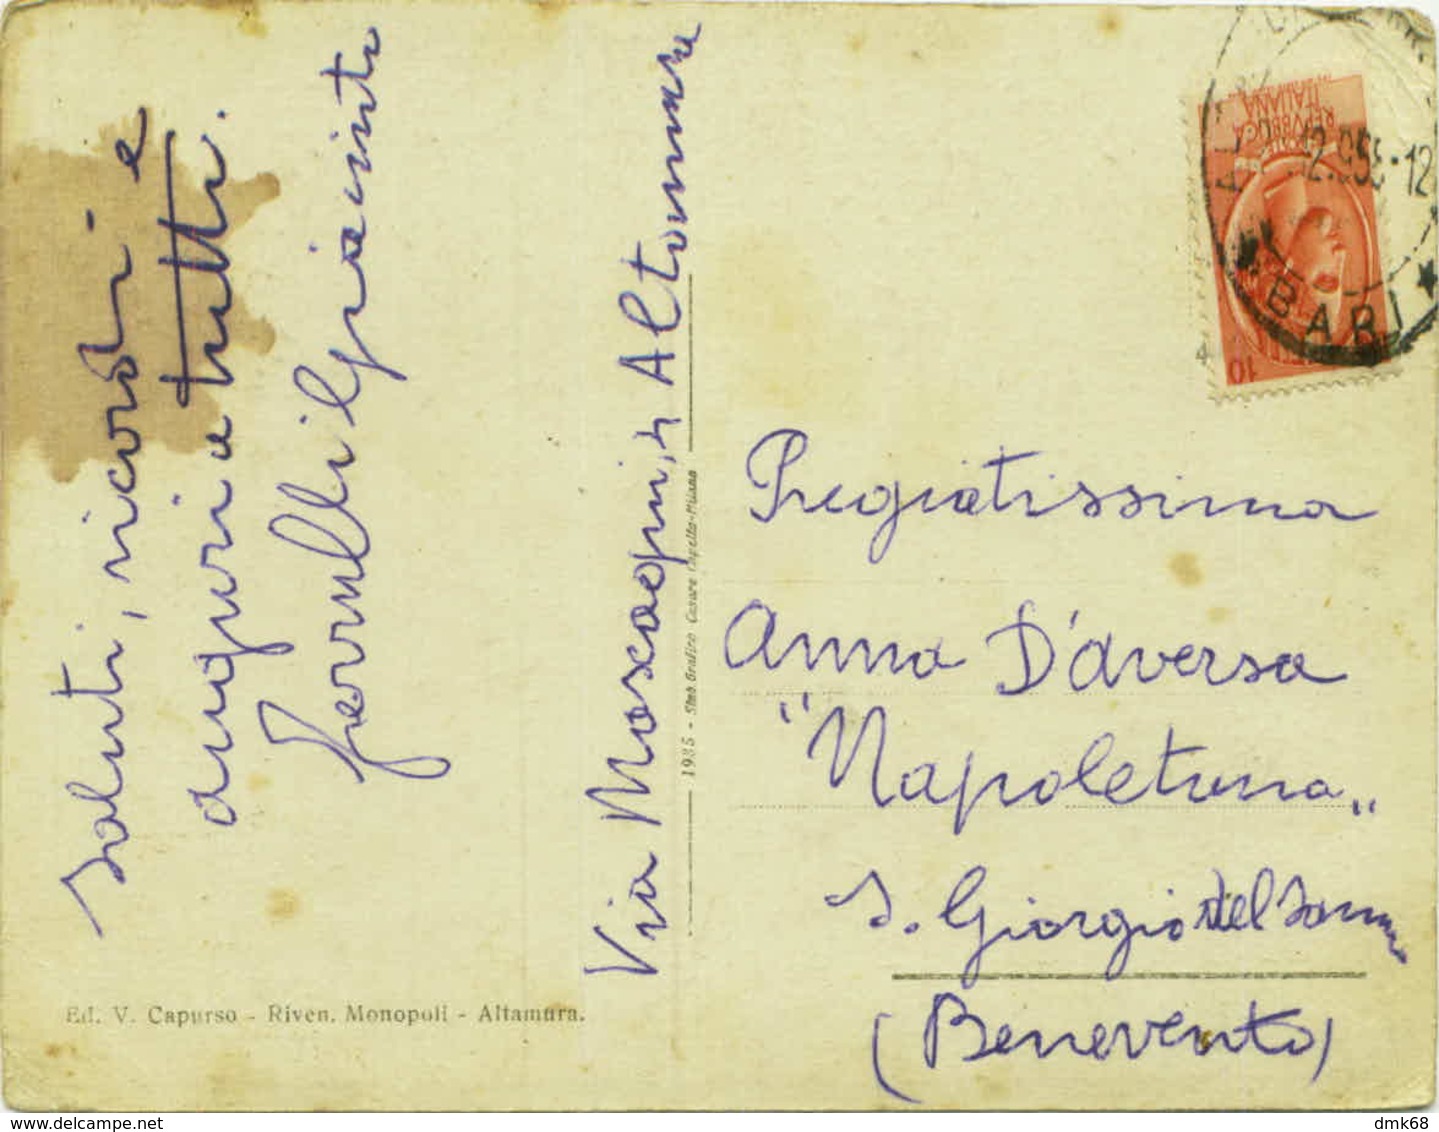 Saluti, ricordi - e
auguri a tutti.
Giacinto
Via Mascagni, 4 Altamura
1935 - Stab. Grafico Cesare Capello-Milano
REPVBBLICA
ITALIANA
BARI
10
Pregiatissima
Anna D'Aversa
"Napoletana„
S. Giorgio del Sannio
(Benevento)
Ed. V. Capurso - Riven. Monopoli - Altamura.
www.delcampe.net
dmk68